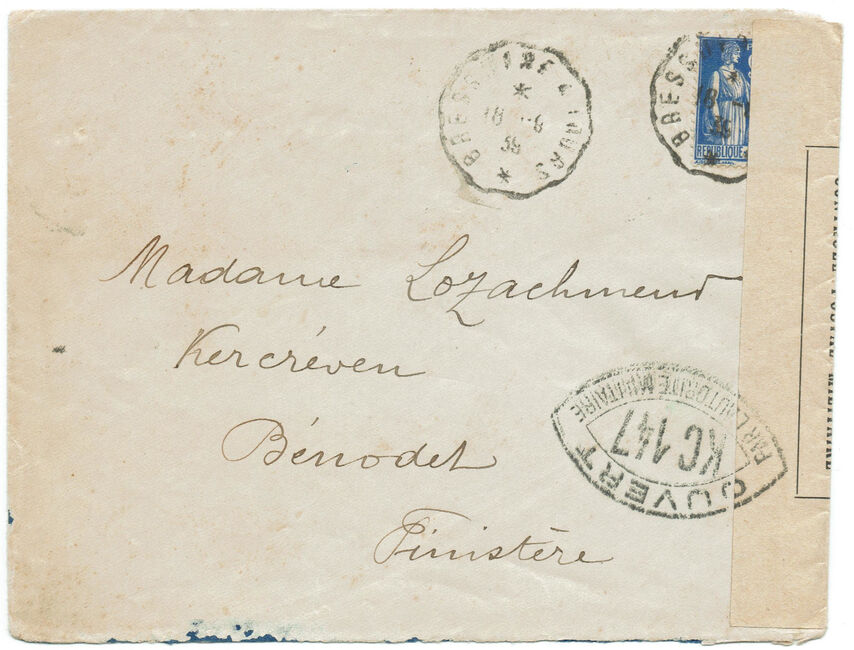 BRESSUIRE A TOURS
18 -8
39
BRESS
18
39
REPUBLIQUE
Madame Lozachmeur
Kercréven
Bénodet
Finistère
OUVERT
PAR L'AUTORITÉ MILITAIRE
KC 147
CONTROLE POSTAL MILITAIRE